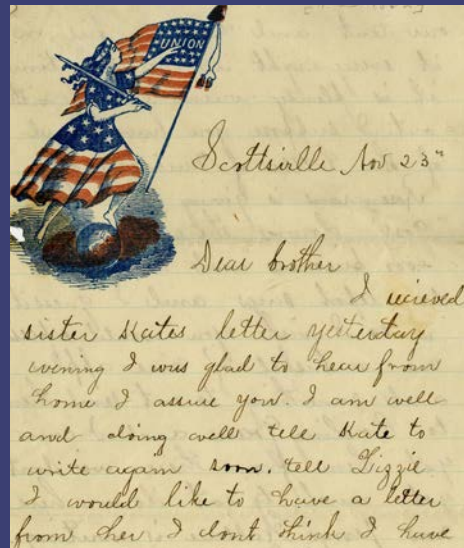 UNION
Scottsville Nov 23"
Dear brother
I recieved
sister Kates letter yesterday
evening I was glad to hear from
home I assure you. I am well
and doing well tell Kate to
write again soon. tell Lizzie
I would like to have a letter
from her I dont think I have